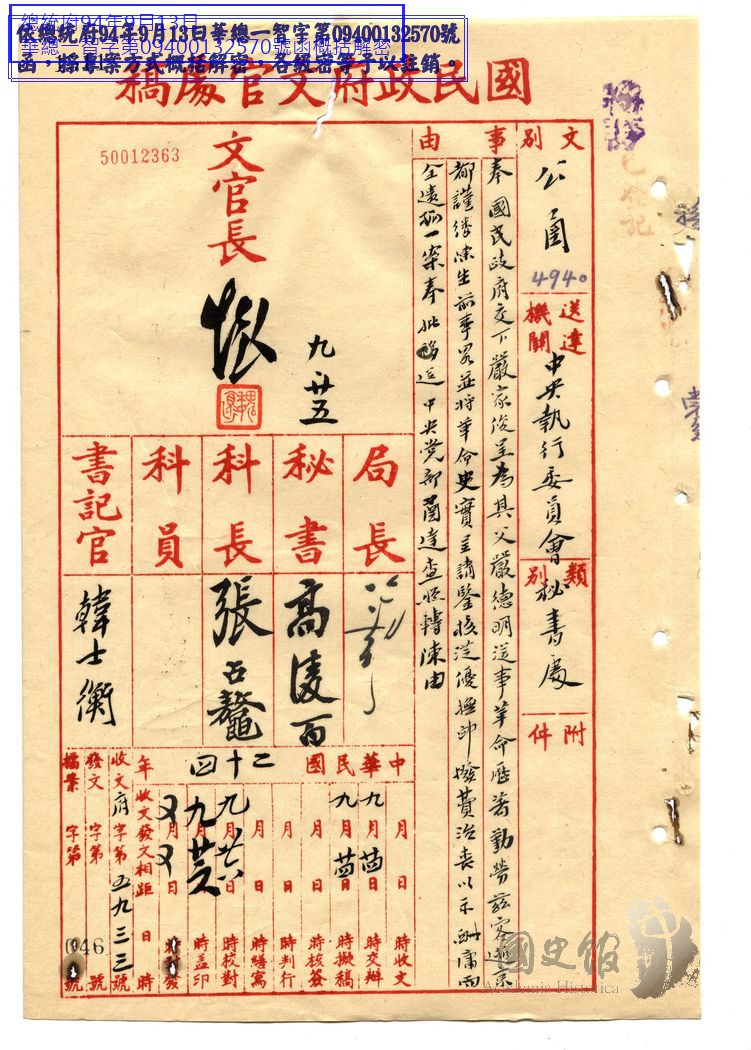 總統府94年9月13日
華總一智字第09400132570號函概括解密
依總統府94年9月13日華總一智字第09400132570號
函，將專案方式概括解密，各級密等予以註銷。
國民政府文官處稿
50012363
已登記
文別
公函
4940
送達機關
中央執行委員會秘書處
類別
附件
事由
奉國民政府交下嚴家俊呈為其父嚴德明從事革命歷著勤勞茲客逝京
都謹縷陳生前事畧並將革命史實呈請鑒核從優撫卹撥費治喪以示酬庸而
全遺孤一案奉批移送中央党部函達查照轉陳由
文官長
懷
九 廿五
局長
秘書
高凌百
科長
張占鰲
科員
書記官
韓士衡
中華民國二十四年
月 日 時收文
九月廿四日 時交辦
九月廿四日 時擬稿
月 日 時核簽
月 日 時判行
月 日 時繕寫
九月廿六日 時校對
九月 日 時蓋印
月 日
收文發文相距 日 時
收文府字第五九三三號
發文 字第 號
檔案 字第 號
046
國史館
Academia Historica